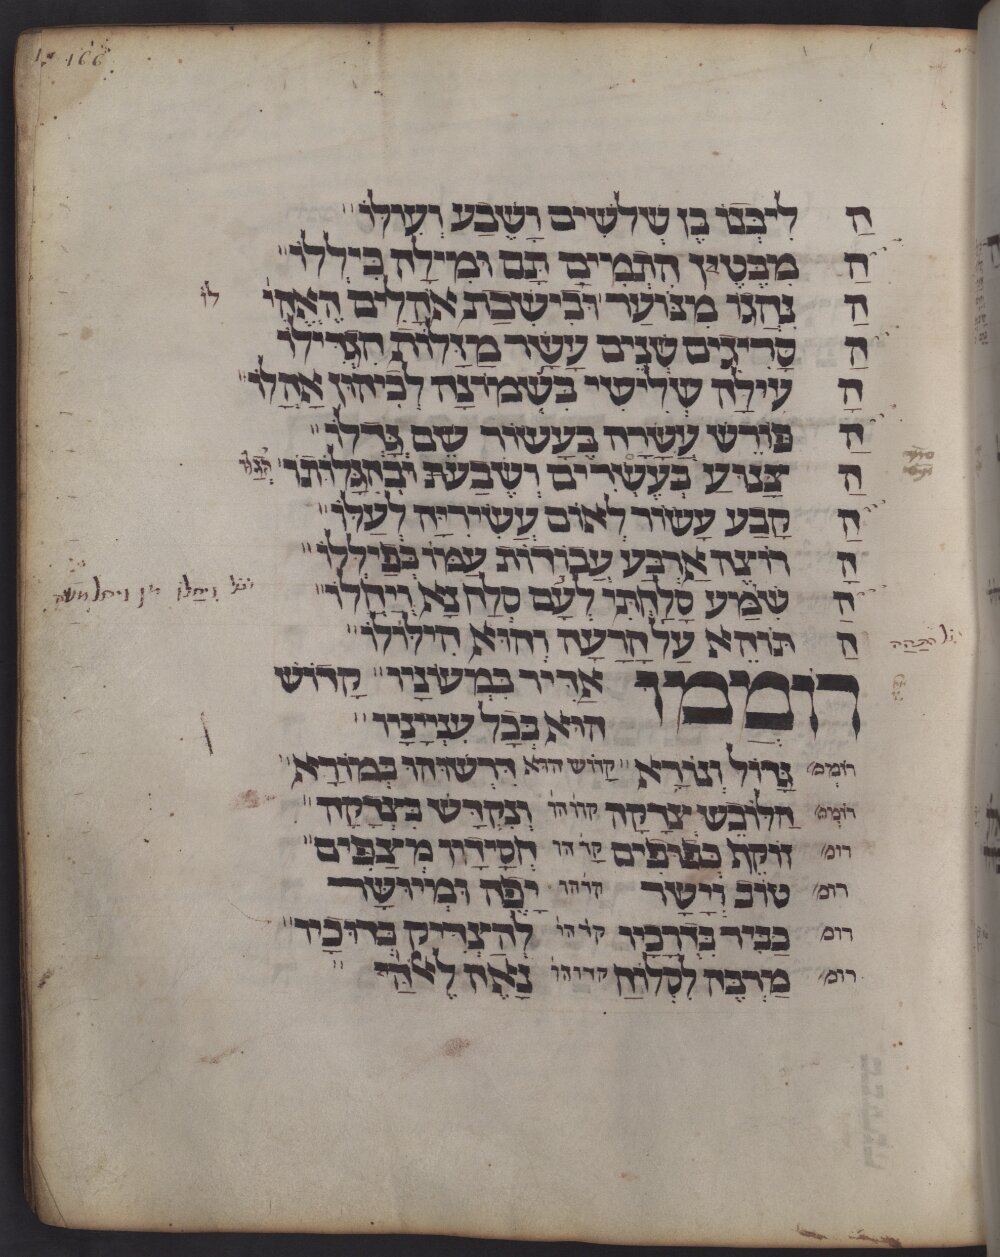 166
הַ לִיבְּנוֹ בֶן שְׁלֹשִׁים וָשֶׁבַע וְעִילְּוֹ
הַ מִבֶּטֶן הִתְמִים תָּם וּמִילָה כִּילְלוֹ
הַ נְהָגוֹ מִנּוֹעַר וּבִישִׁיבַת אֹהָלִים
הַ סָרִיגִים שְׁנֵים עָשָׂר מַזָּלוֹת הִגְדִילוֹ
הַ עִילָה שְׁלִישִׁי בִּשְׁמוֹנָה לְכִיהוּן אָהֳלוֹ
הַ פּוֹרֵשׁ עֲשָׂרָה בֶּעָשׂוֹר שֵׁם גָּדְלוֹ
הַ צָּנִיעַ בְּעֶשְׂרִים וְשִׁבְעַת
הַ קָבַע עָשׂוֹר לְאוֹם עֲשִׂירִיָּה לְעַלּוֹ
הַ רוֹצֶה אַרְבַּע עֲבוֹדוֹת עַמּוֹ כְּפִילְלוֹ
הַ שׁוֹמֵעַ סָלַחְתִּי לְעָם סְלַח נָא
הַ תּוֹהֵא עַל הָרָעָה וְהוּא חִילּוּלוֹ
רוֹמְמוּ אַדִּיר בְּמִשְׁנָיו קָדוֹשׁ
הוּא בְּכָל עִנְיָנָיו
רוֹמְמ׳ גָּדוֹל וְנוֹרָא קָדוֹשׁ הוּא דִּרְשׁוּהוּ בְּמוֹרָא
רוֹמְמ׳ הַלּוֹבֵשׁ צְדָקָה קדוֹ הוּ וְנִקְדָּשׁ בִּצְדָקָה
רומ׳ זוֹקֵף כְּפוּפִים קדו הו חֲסִידָיו מְצַפִּים
רומ׳ טוֹב וְיָשָׁר קדו הו יָפֶה וּמְיוּשָּׁר
רומ׳ כַּבִּיר בִּדְרָכָיו קדו הו לְהַצְדִּיק בְּרוּכָיו
רומ׳ מַרְבֶּה לִסְלוֹחַ קדו הו נָאֶה